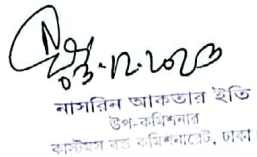 ০৩.১২.২০২৩
নাসরিন আকতার ইতি
উপ-কমিশনার
কাস্টমস বন্ড কমিশনারেট, ঢাকা